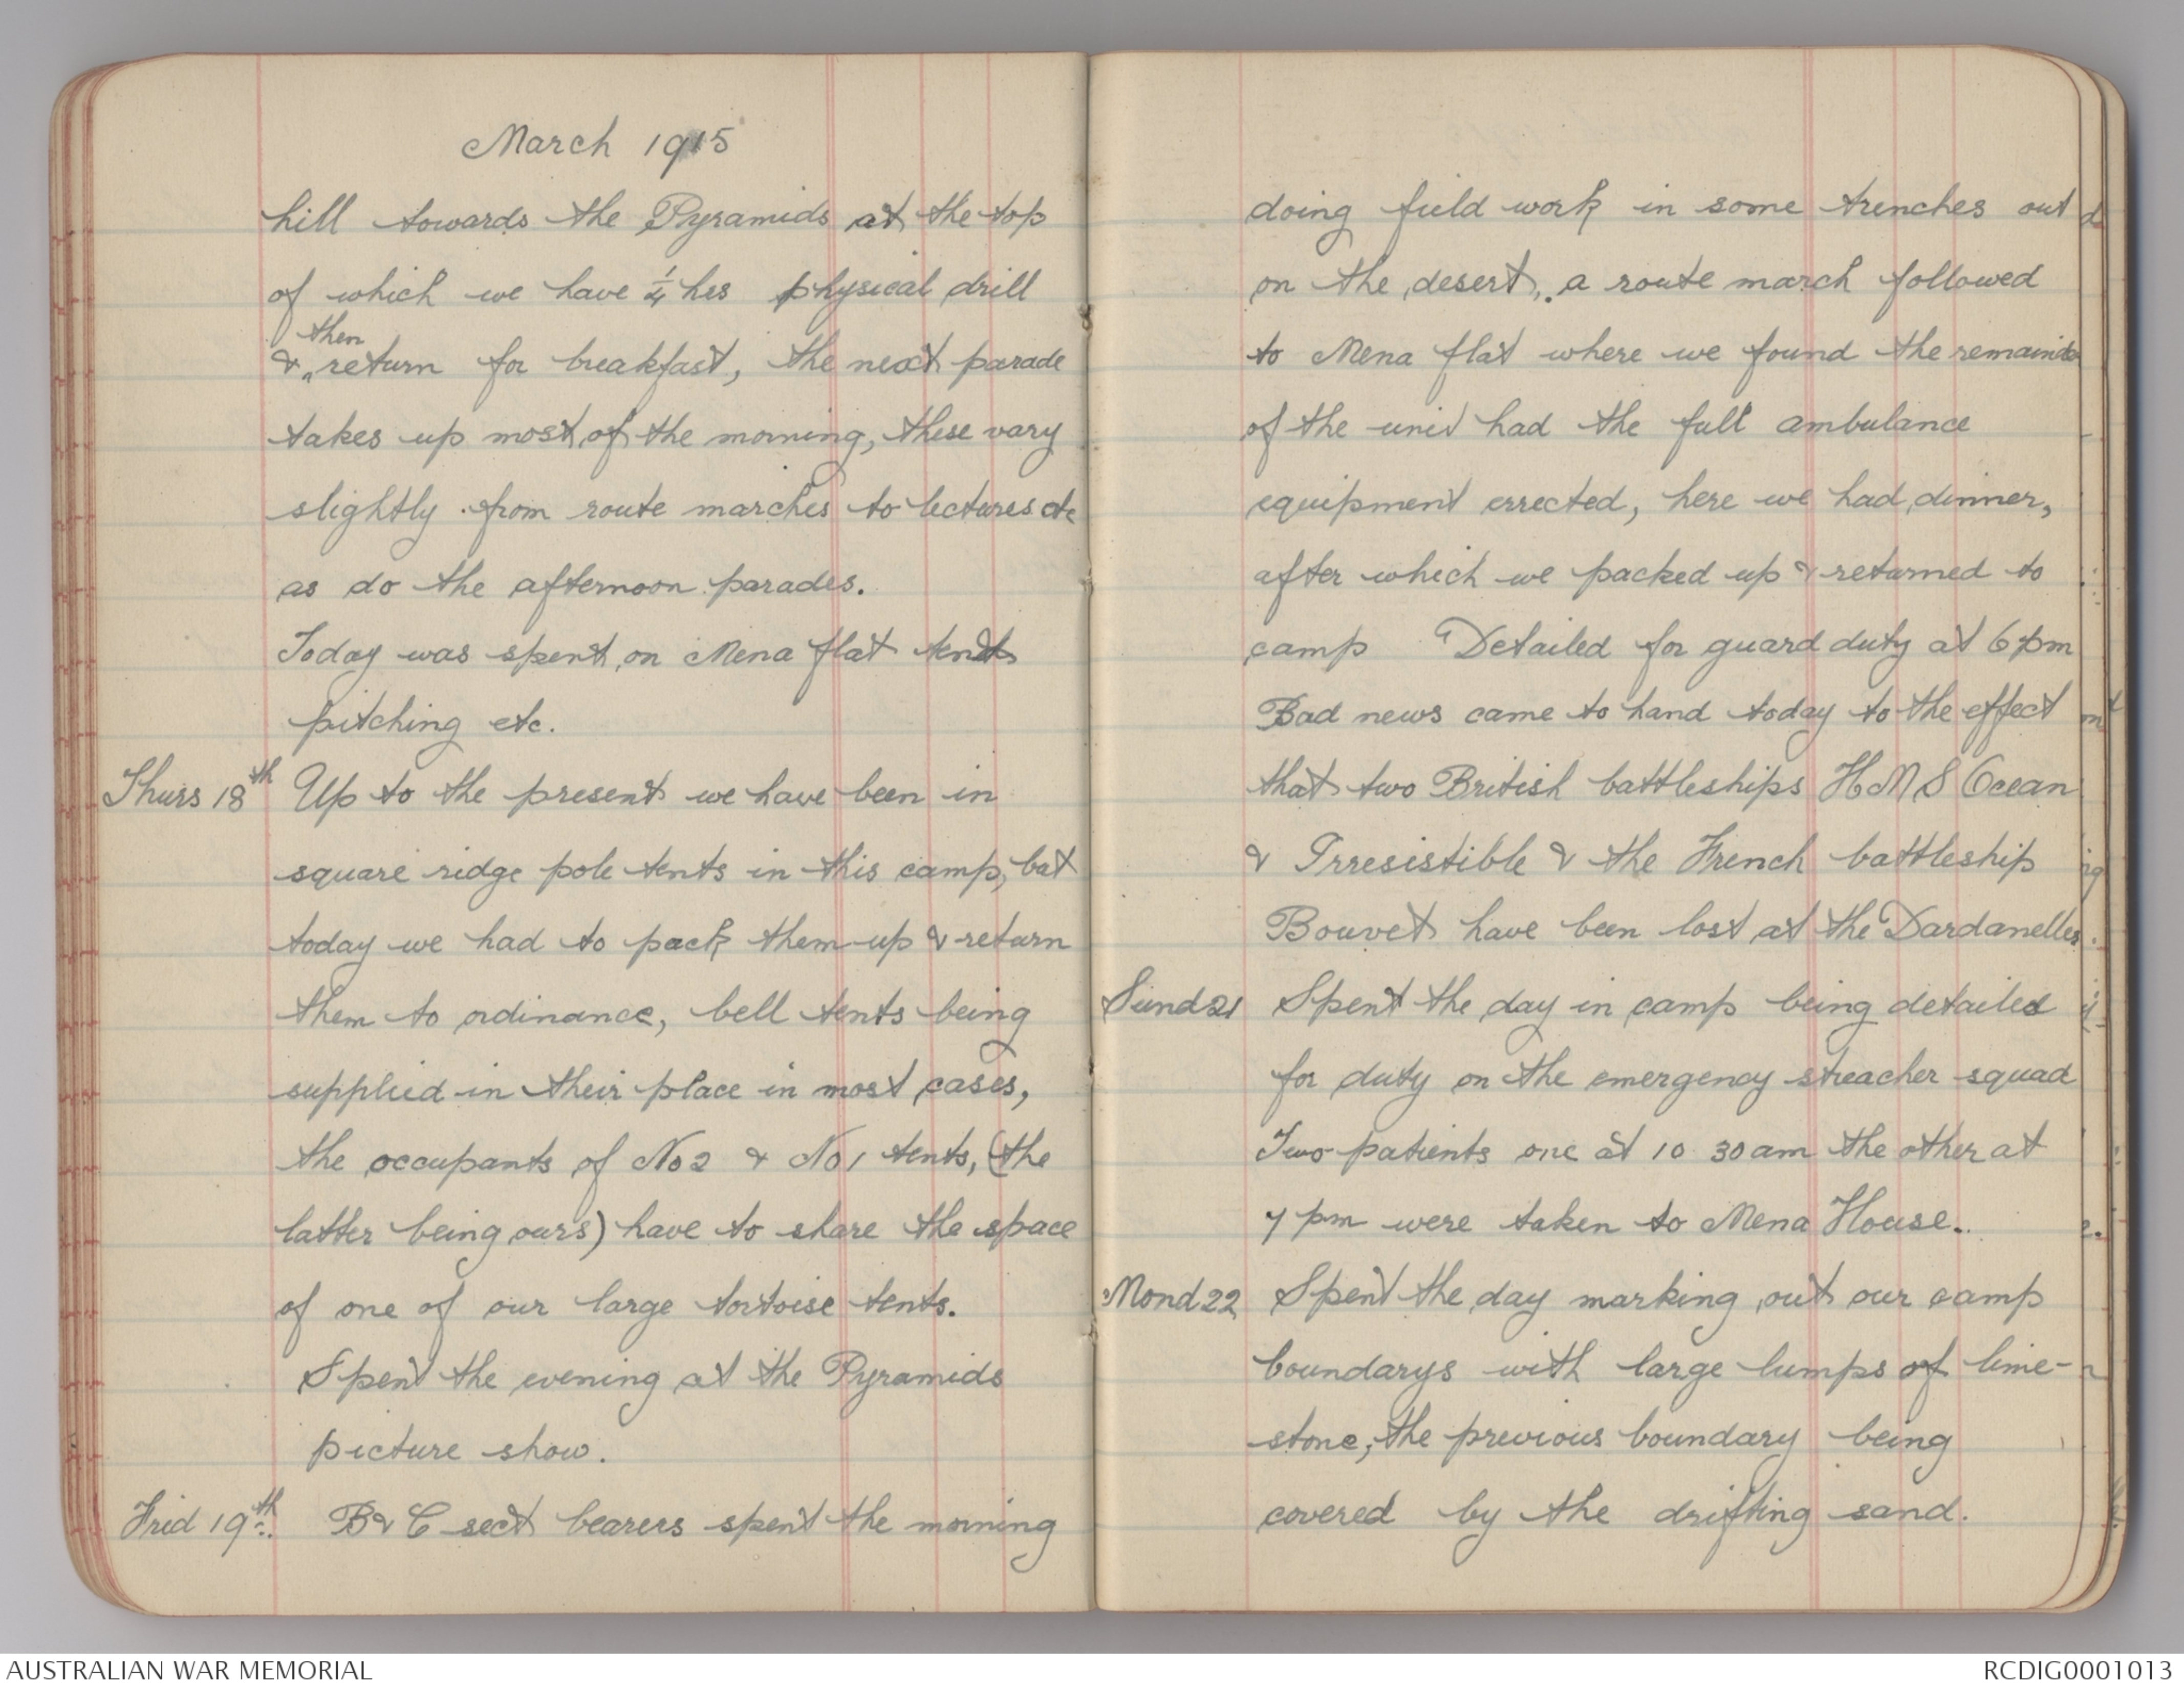 March 1915
hill towards the Pyramids at the top
of which we have ¼ hrs physical drill
then
& ^ return for breakfast, the next parade
takes up most of the morning, these vary
slightly from route marches to lectures etc
as do the afternoon parades.
Today was spent on Mena flat tent
pitching etc.
Thurs 18th Up to the present we have been in
square ridge pole tents in this camp, but
today we had to pack them up & return
them to ordinance, bell tents being
supplied in their place in most cases,
the occupants of No 2 & No 1 tents, (the
latter being ours) have to share the space
of one of our large tortoise tents.
Spent the evening at the Pyramids
picture show.
Frid 19th. B & C sect bearers spent the morning
doing field work in some trenches out
on the desert, a route march followed
to Mena flat where we found the remainder
of the unit had the full ambulance
equipment errected, here we had dinner,
after which we packed up & returned to
camp Detailed for guard duty at 6 pm
Bad news came to hand today to the effect
that two British battleships HMS Ocean
& Irresistible & the French battleship
Bouvet have been lost at the Dardanelles.
Sund 21 Spent the day in camp being detailed
for duty on the emergency streacher squad
Two patients one at 10 30 am the other at
7 pm were taken to Mena House.
Mond 22 Spent the day marking out our camp
boundarys with large lumps of lime-
stone, the previous boundary being
covered by the drifting sand.
AUSTRALIAN WAR MEMORIAL
RCDIG0001013